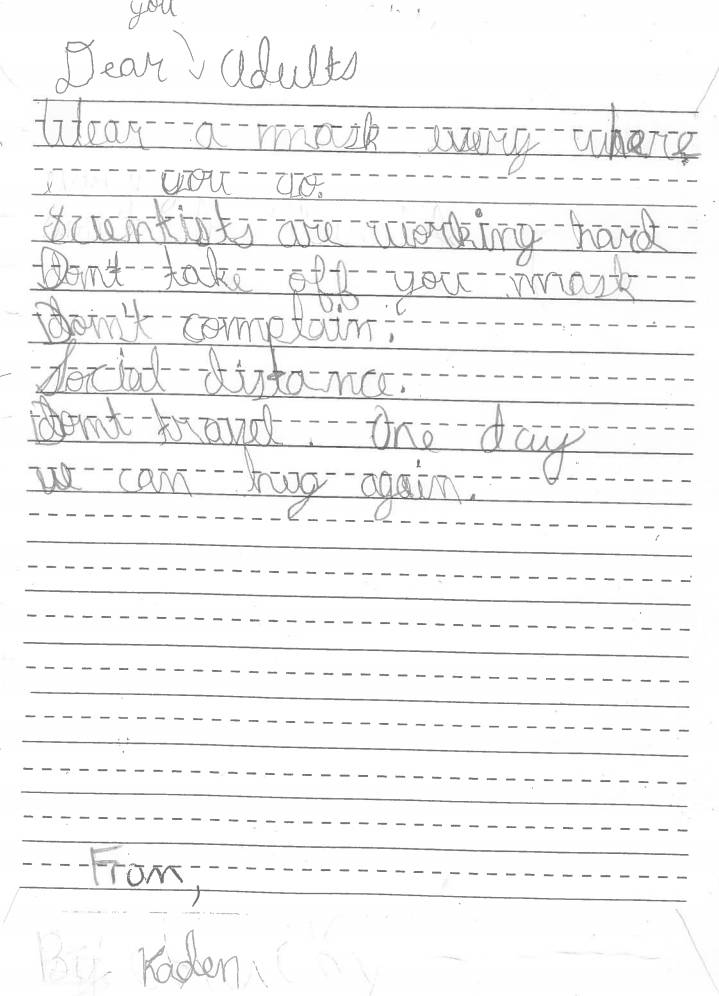 you
Dear adults
Wear a mask every where
you go.
scientists are working hard
Don't take off you mask
don't complain.
Social distance.
dont travel. One day
we can hug again.
From,
Kaden